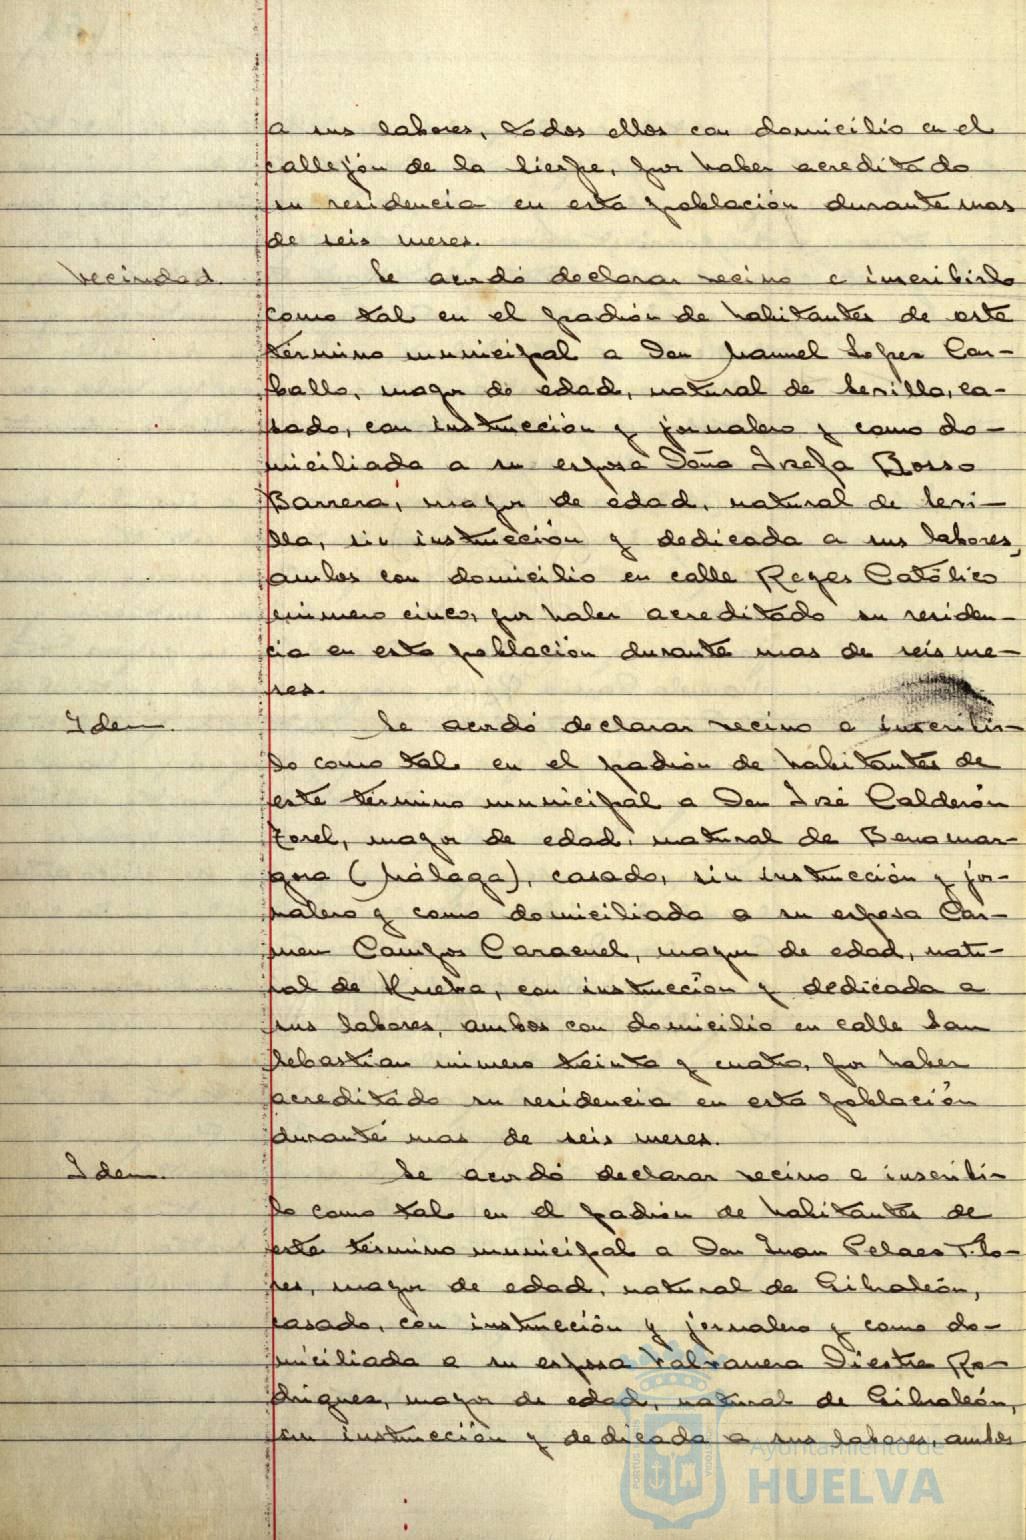 a sus labores, todos ellos con domicilio en el
callejón de la Sierpe, por haber acreditado
su residencia en esta población durante mas
de seis meses.
Vecindad.
Se acordó declarar vecino e inscribirlo
como tal en el padrón de habitantes de este
término municipal a Don Manuel Lopez Car-
ballo, mayor de edad, natural de Sevilla, ca-
sado, con instrucción y jornalero y como do-
miciliada a su esposa Doña Josefa Bosso
Barrera, mayor de edad, natural de Sevi-
lla, sin instrucción y dedicada a sus labores,
ambos con domicilio en calle Reyes Católico
número cinco, por haber acreditado su residen-
cia en esta población durante mas de seis me-
ses.
Idem.
Se acordó declarar vecino e inscribir-
lo como tal en el padrón de habitantes de
este término municipal a Don José Calderón
mayor de edad, natural de Benamar-
gosa (Málaga), casado, sin instrucción y jor-
nalero y como domiciliada a su esposa Car-
men Campos Caracuel, mayor de edad, natu-
ral de Huelva, con instrucción y dedicada a
sus labores, ambos con domicilio en calle San
Sebastian número treinta y cuatro, por haber
acreditado su residencia en esta población
durante mas de seis meses.
Idem.
Se acordó declarar vecino e inscribi-
lo como tal en el padrón de habitantes de
este término municipal a Don Juan Pelaes Flo-
res, mayor de edad, natural de Gibraleón,
casado, con instrucción y jornalero y como do-
miciliada a su esposa Valvanera Diestra Ro-
driguez, mayor de edad, natural de Gibraleón,
sin instrucción y dedicada a sus labores, ambos
Ayuntamiento de
HUELVA